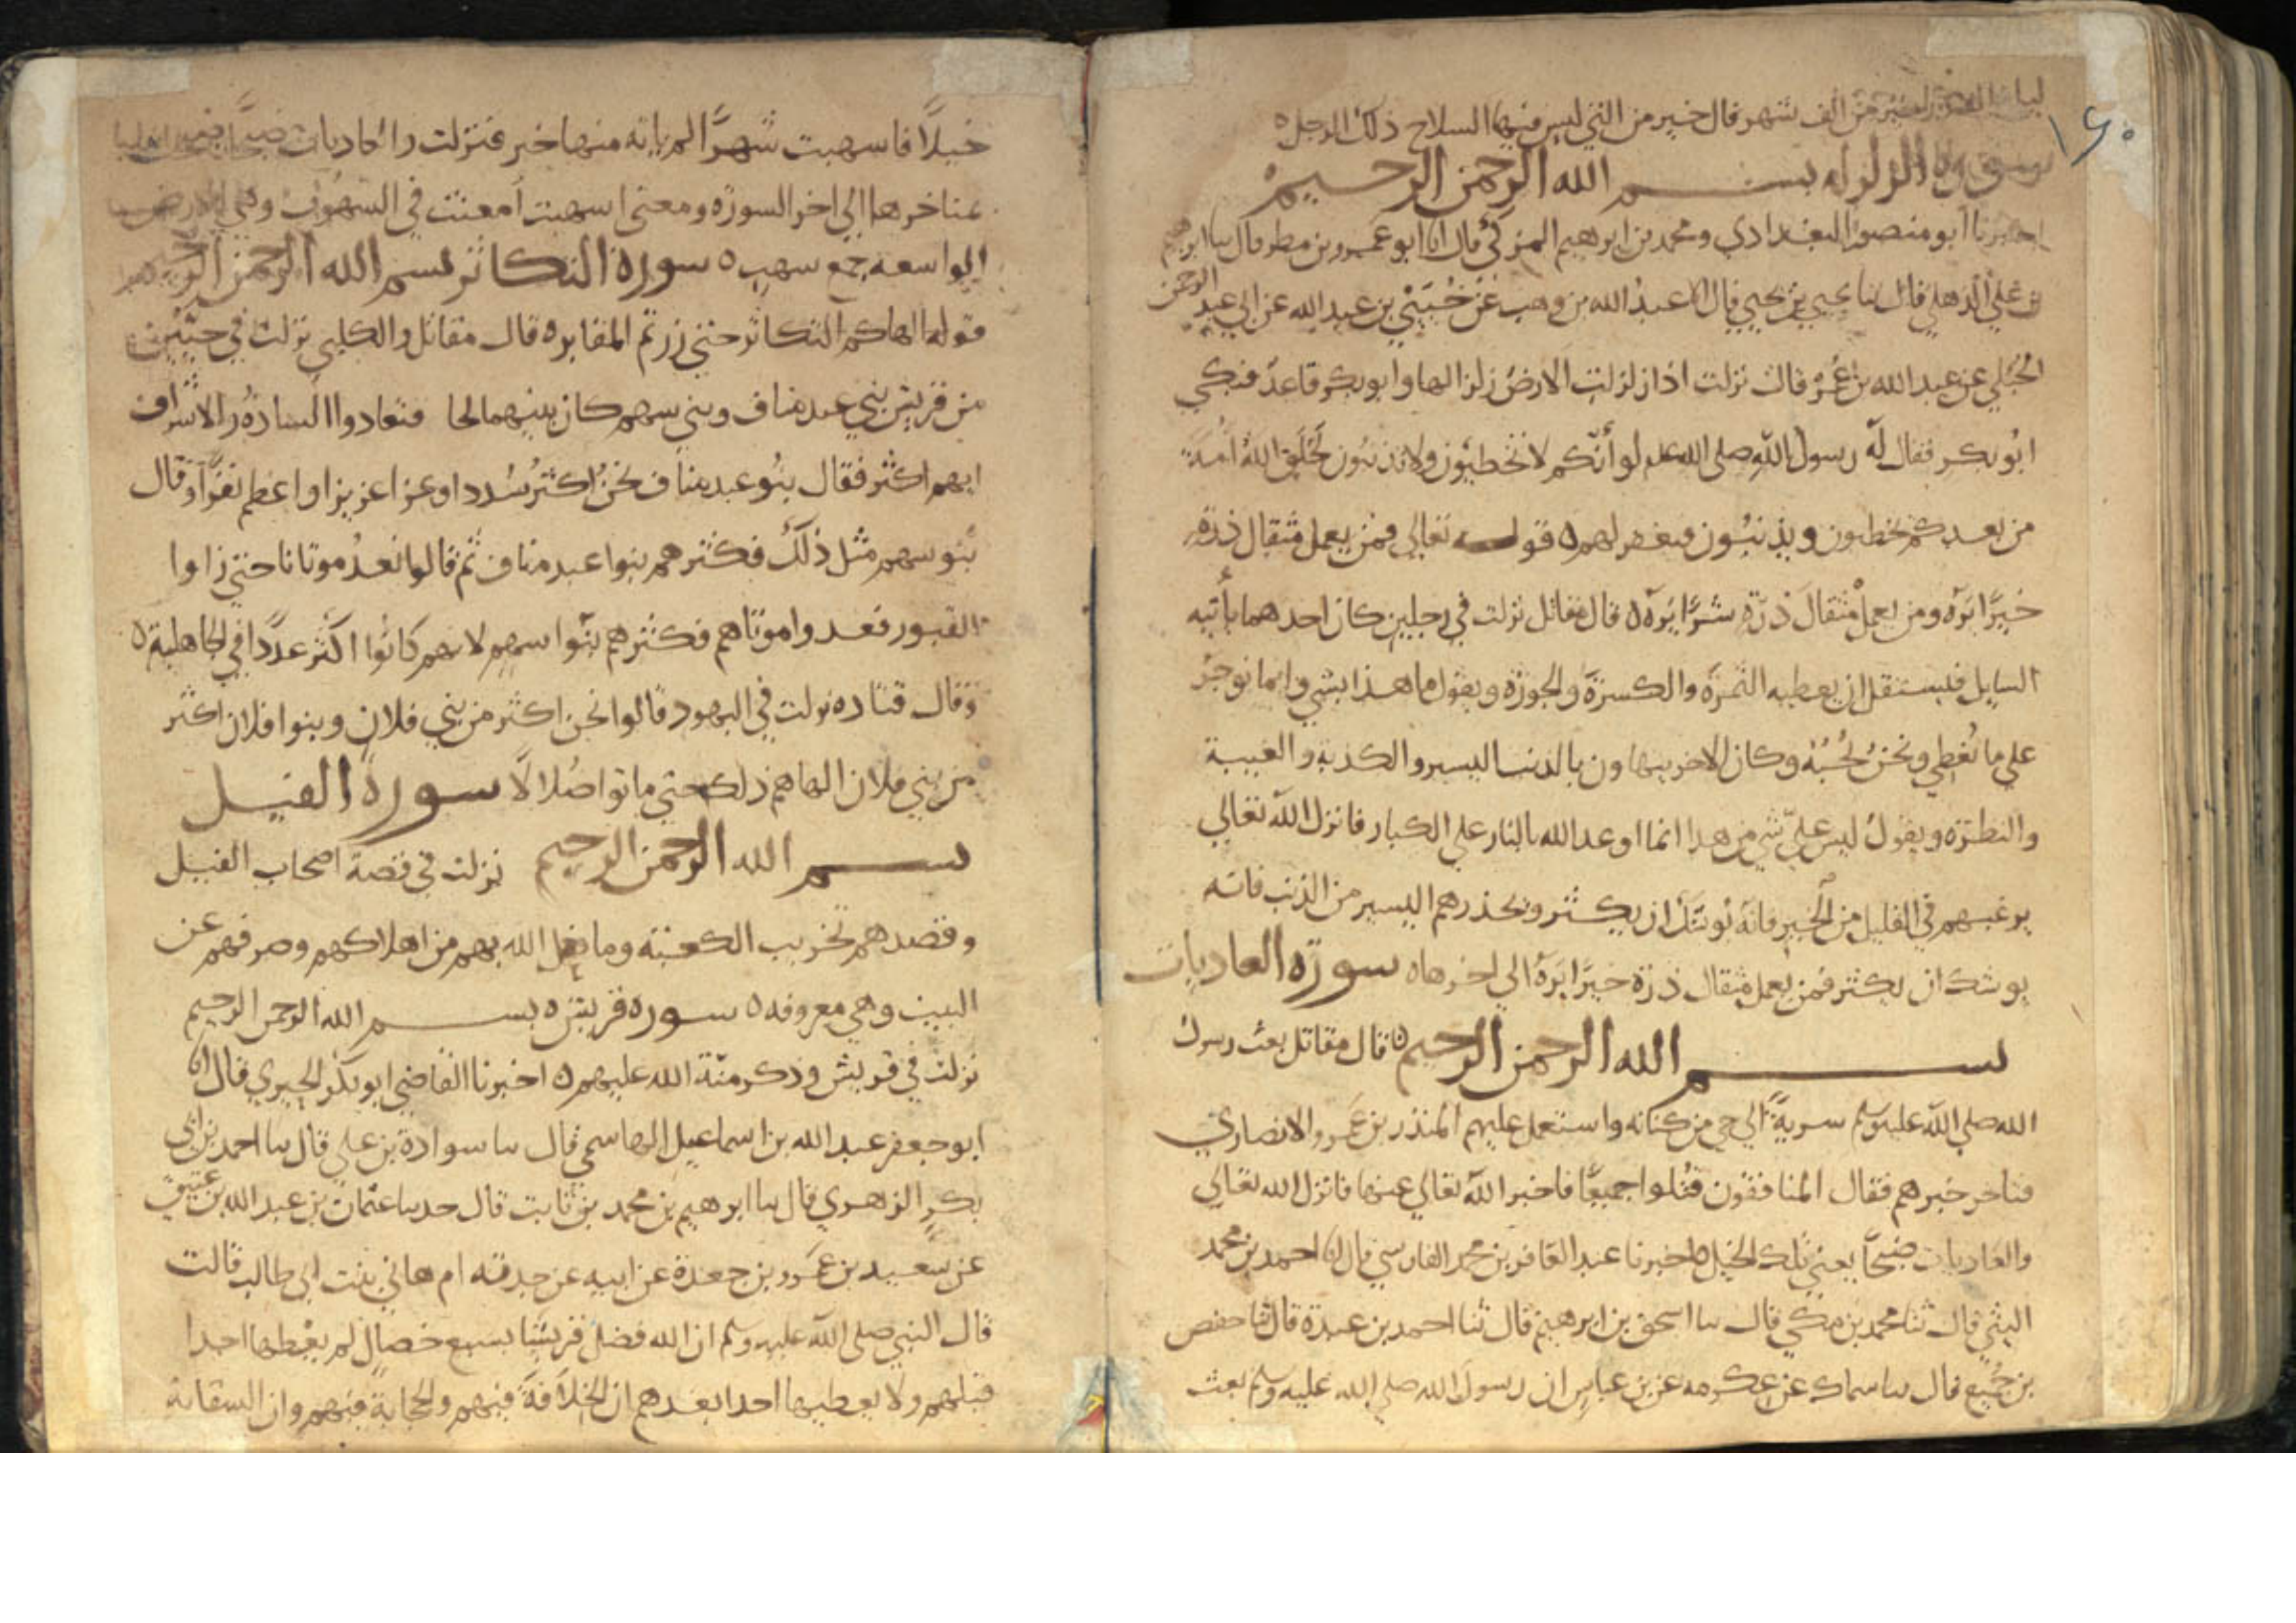 ليلة القدر خير من الف شهر قال خير من التي لبس فيها السلاح ذلك الرجل ه
سورة الزلزله بسم الله الرحمن الرحيم
اخبرنا ابو منصور البغدادي ومحمد بن ابرهيم المزكي قال انا ابو عمرو بن مطر قال ثنا ابرهيم
بن علي الذهلي قال ثنا يحيي بن يحيي قال انا عبد الله بن وهب عن حُيَيّ بن عبد الله عن ابي عبد الرحمن
الحُبُلي عن عبد الله بن عمرو قال نزلت اذا زلزلت الارض زلزالها وابو بكر قاعد فبكي
ابو بكر فقال له رسول الله صلى الله علم لو أنكم لا تخطيون ولا تذنبون لخلق الله امة
من بعدكم يخطيون ويذنبون فيغفر لهم ه قوله تعالي فمن يعمل مثقال ذرة
خيرًا يره ومن يعمل مثقال ذرة شرًّا يره ه قال مقاتل نزلت في رجلين كان احدهما يأتيه
السايل فيستقل ان يعطيه التمرة والكسرة والجوزة ويقول ما هذا بشي وانما نوجر
علي ما نُعطي ونحن نُحبّه وكان الاخر يتهاون بالذنب اليسير والكذبة والغيبة
والنظرة ويقول ليس عليّ شي من هذا انما اوعد الله بالنار علي الكبار فانزل الله تعالي
يرغبهم في القليل من الخير فانه يوشك ان يكثر ويحذرهم اليسير من الذنب فانه
يوشك ان يكثر فمن يعمل مثقال ذرة خيرًا يره الي اخرها ه سورة العاديات
بسم الله الرحمن الرحيم ه قال مقاتل بعث رسول
الله صلي الله عليه وسلم سرية الي حي من كنانه واستعمل عليهم المنذر بن عمرو الانصاري
فتاخر خبرهم فقال المنافقون قُتلوا جميعًا فاخبر الله تعالي عنها فانزل الله تعالي
والعاديات ضبحًا يعني تلك الخيل ه اخبرنا عبد الغافر بن محمد الفارسي قال انا احمد بن محمد
البشتي قال ثنا محمد بن مكي قال ثنا اسحق بن ابرهيم قال ثنا احمد بن عبدة قال ثنا حفص
بن جُميع قال ثنا سماك عن عكرمه عن بن عباس ان رسول الله صلي الله عليه وسلم بعث
خيلًا فاسهبت شهرًا لم ياته منها خبر فنزلت والعاديات ضبحًا
مناخرها الي اخر السورة ومعنى اسهبت أمعنت في السهوب وهي الارض
الواسعه جمع سهب ه سورة التكاثر بسم الله الرحمن الرحيم
قوله الهاكم التكاثر حتى زرتم المقابر ه قال مقاتل والكلبي نزلت في حيّين
من قريش بني عبد مناف وبني سهم كان بينهما لحا فتعادوا السادة والاشراف
ايهم اكثر فقال بنو عبد مناف نحن اكثر سُدد او عزا عزيزا واعظم نفرًا وقال
بنو سهم مثل ذلك فكثرهم بنوا عبد مناف ثم قالوا نعد موتانا حتى زاوا
القبور فعدوا موتاهم فكثرهم بنوا سهم لانهم كانوا اكثر عددًا في الجاهلية ه
وقال قتاده نزلت في اليهود قالوا نحن اكثر من بني فلان وبنوا فلان اكثر
من بني فلان الهاهم ذلك حتي ماتوا ضُلالًا سورة الفيل
بسم الله الرحمن الرحيم نزلت في قصة اصحاب الفيل
وقصدهم تخريب الكعبة وما فعل الله بهم من اهلاكهم وصرفهم عن
البيت وهي معروفه ه سوره قريش ه بسم الله الرحمن الرحيم
نزلت في قريش وذكر منّة الله عليهم ه اخبرنا القاضي ابو بكر الحيري قال انا
ابو جعفر عبد الله بن اسماعيل الهاشمي قال ثنا سوادة بن علي قال ثنا احمد بن ابي
بكر الزهري قال ثنا ابرهيم بن محمد بن ثابت قال حدثنا عثمان بن عبد الله بن عتيق
عن سعيد بن عمرو بن جعدة عن ابيه عن جدته ام هاني بنت ابي طالب قالت
قال النبي صلي الله عليه وسلم ان الله فضل قريشًا بسبع خصال لم يعطها احدا
قبلهم ولا يعطيها احدا بعدهم ان الخلافة فيهم والحجابة فيهم وان السقاية